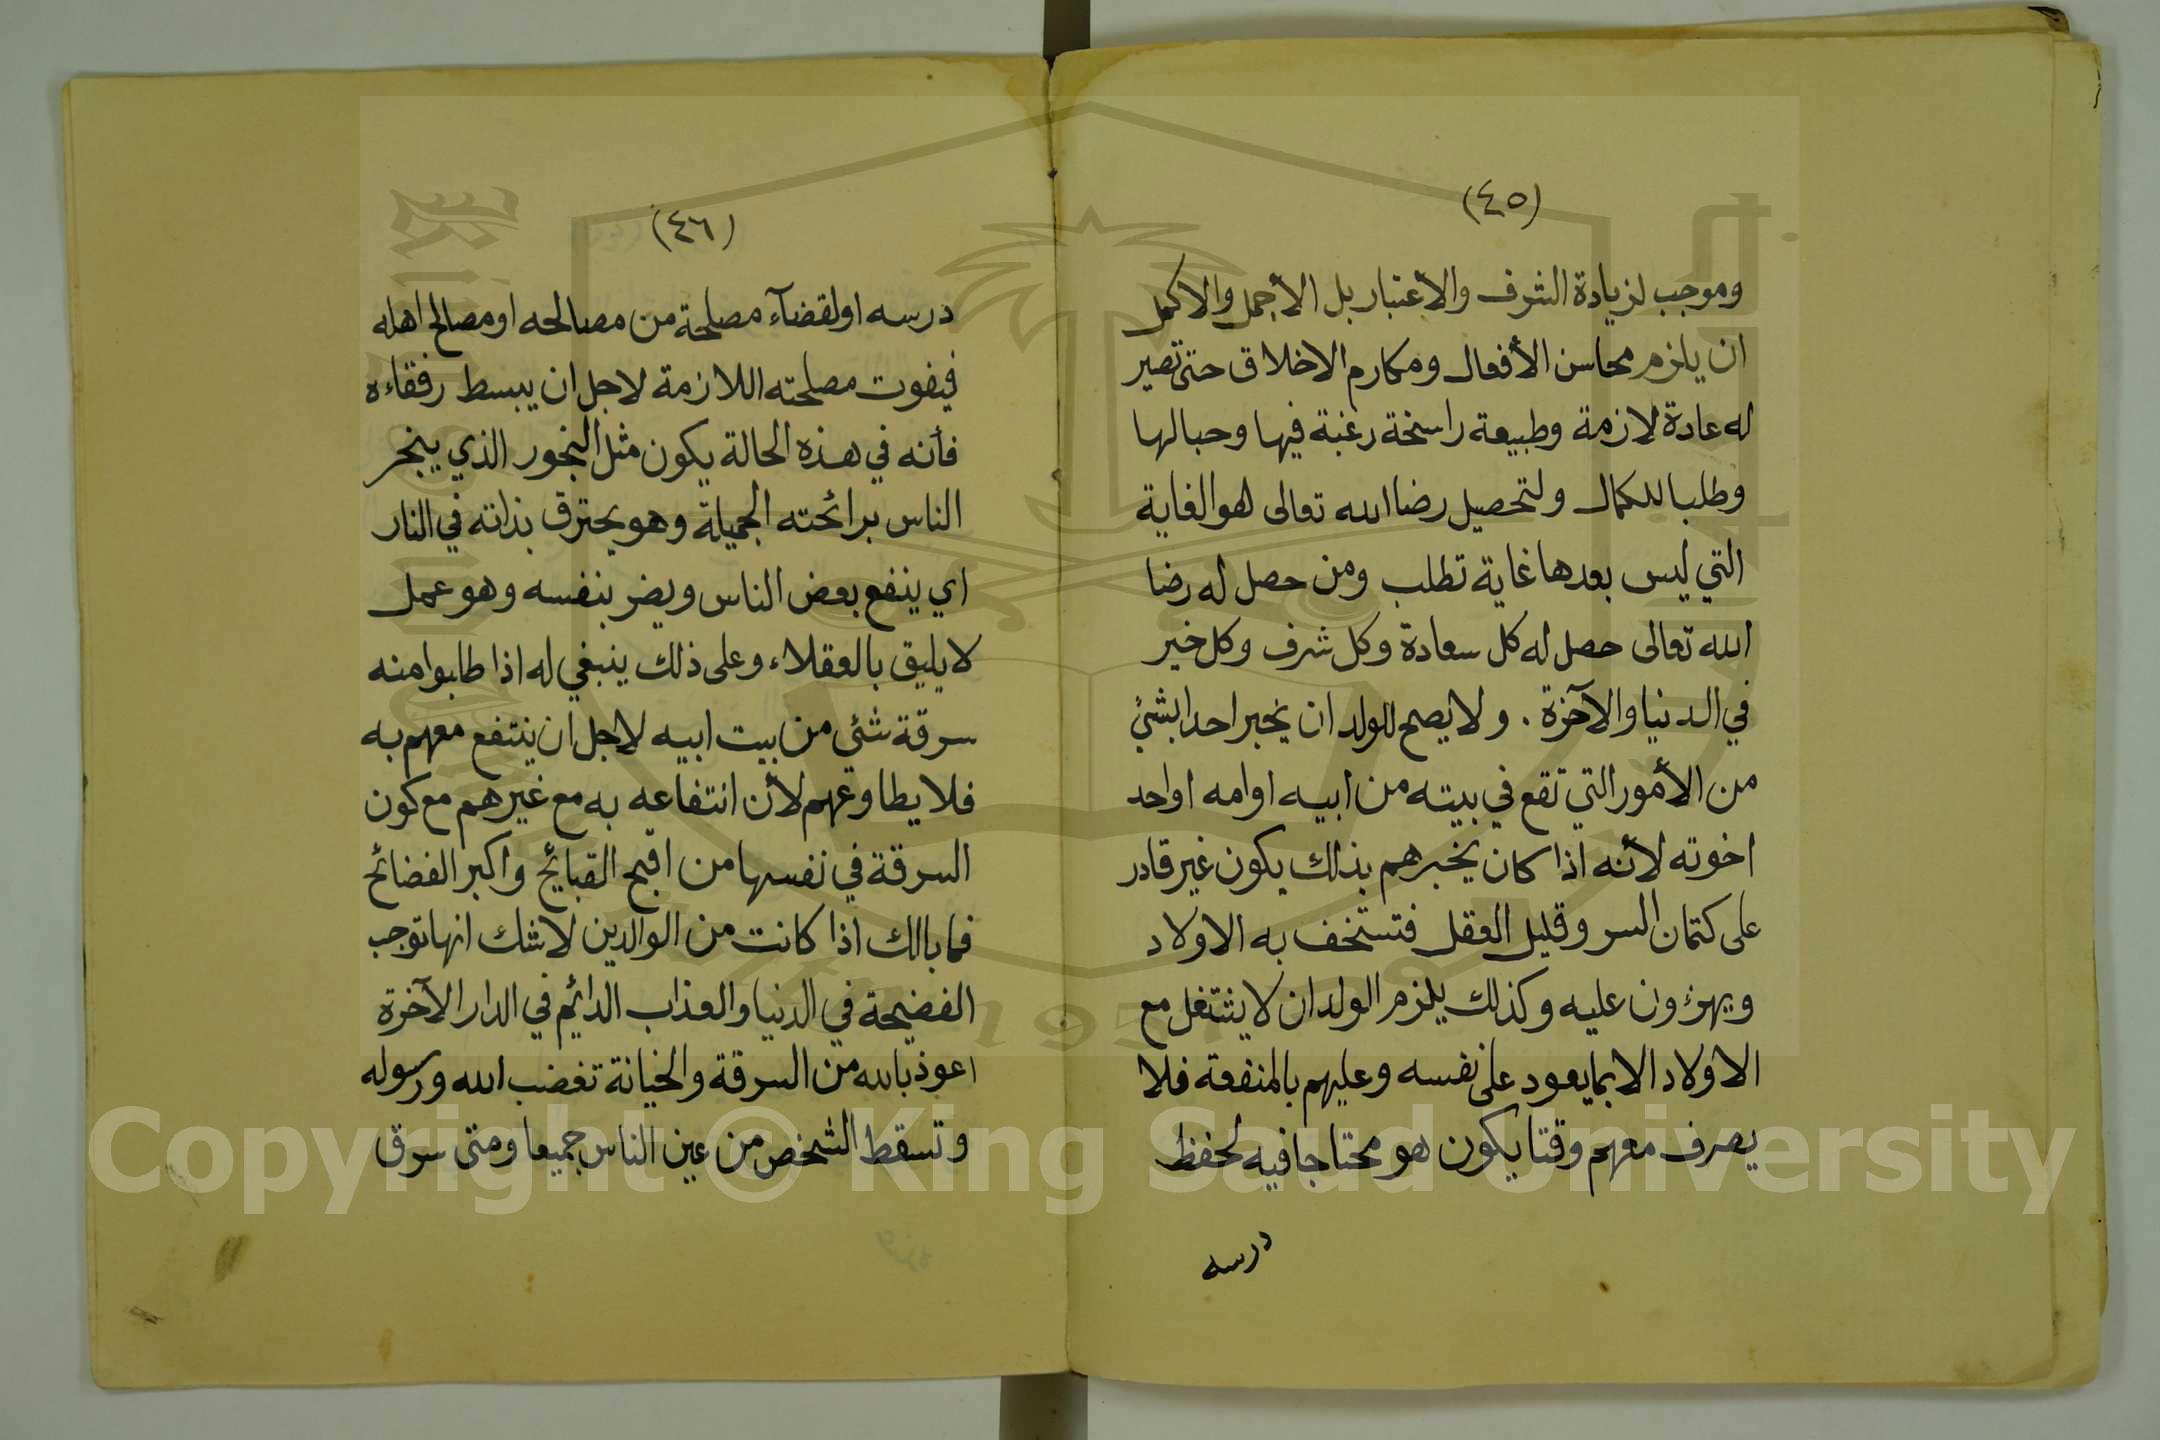 (٤٥)
وموجب لزيادة الشرف والأعتبار بل الأجمل والاكمل
ان يلزم محاسن الأفعال ومكارم الاخلاق حتى تصير
له عادة لازمة وطبيعة راسخة رغبة فيها وحبا لها
وطلبا للكمال ولتحصيل رضا الله تعالى لهو الغاية
التي ليس بعدها غاية تطلب ومن حصل له رضا
الله تعالى حصل له كل سعادة وكل شرف وكل خير
في الدنيا والآخرة . ولا يصح للولد ان يخبر احدا بشئ
من الأمور التي تقع في بيته من ابيه او امه او احد
اخوته لأنه اذا كان يخبرهم بذلك يكون غير قادر
على كتمان السر وقليل العقل فتستخف به الاولاد
ويهزؤن عليه وكذلك يلزم الولد ان لا يشتغل مع
الاولاد الا بما يعود على نفسه وعليهم بالمنفعة فلا
يصرف معهم وقتا يكون هو محتاجا فيه لحفظ
درسه
(٤٦)
درسه او لقضآء مصلحة من مصالحه او مصالح اهله
فيفوت مصلحته اللازمة لاجل ان يبسط رفقاءه
فأنه في هذه الحالة يكون مثل البخور الذي يبخر
الناس برائحته الجميلة وهو يحترق بذاته في النار
اي ينفع بعض الناس ويضر بنفسه وهو عمل
لا يليق بالعقلاء وعلى ذلك ينبغي له اذا طابوا منه
سرقة شئي من بيت ابيه لاجل ان ينتفع معهم به
فلا يطاوعهم لأن انتفاعه به مع غيرهم مع كون
السرقة في نفسها من اقبح القبايح واكبر الفضائح
فما بالك اذا كانت من الوالدين لا شك انها توجب
الفضيحة في الدنيا والعذاب الدائم في الدار الآخرة
اعوذ بالله من السرقة والخيانة تغضب الله ورسوله
وتسقط الشخص من عين الناس جميعا ومتى سرق
Copyright © King Saud University
1957